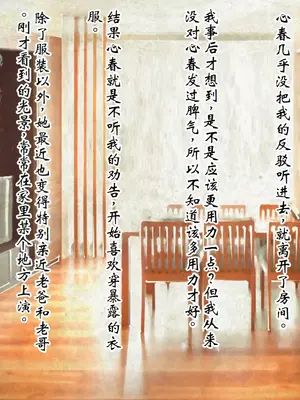 心春几乎没把我的反驳听进去，就离开了房间。
我事后才想到，是不是应该更用力一点？但我从来
没对心春发过脾气，所以不知道该多用力才好。
结果心春就是不听我的劝告，开始喜欢穿暴露的衣
服。
除了服装以外，她最近也变得特别亲近老爸和老哥
。刚才看到的光景，常常在家里某个地方上演。